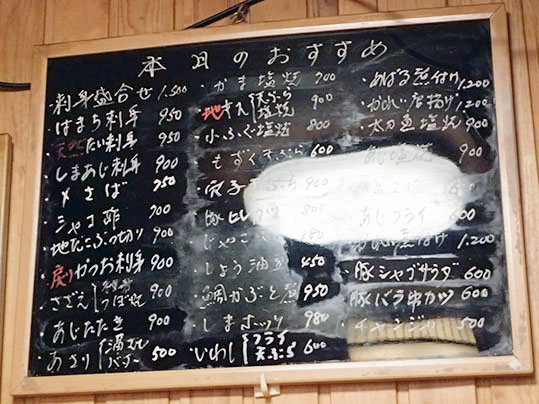 本日のおすすめ
・刺身盛合せ 1.500
・はまち刺身 950
天然たい刺身 950
・しまあじ刺身 900
・〆さば 750
・シャコ酢 700
・地だこぶつ切り 900
・戻りかつお刺身 900
・さざえ つぼ焼 900
・あじたたき 900
・あさり 酒むし バター 500
・かま塩焼 700
・地キス 天ぷら 塩焼 900
・小ふぐ塩焼 800
・もずく天ぷら 600
・穴子 900
・豚ヒレカツ 800
・じゃこ 480
・しょう油 450
・鯛かぶと煮 950
・しまホッケ 980
・いわし フライ 天ぷら 600
・めばる煮付け 1.200
・かれい唐揚げ 1.200
・太刀魚塩焼 900
塩焼 900
600
・あじフライ 600
煮付け 1.200
・豚シャブサラダ 600
・豚バラ串カツ 600
・チャンジャ 500